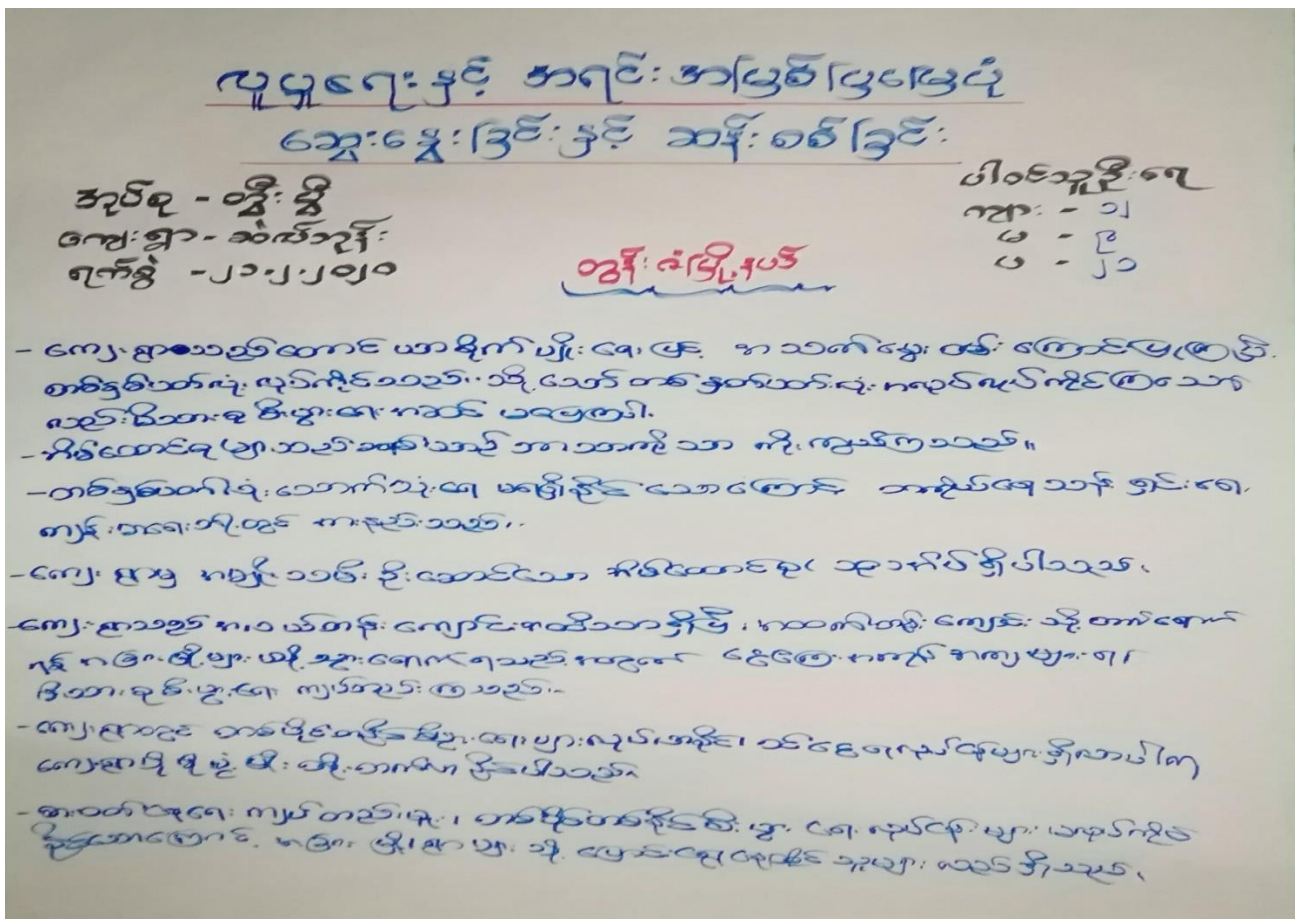 လူမှုရေးနှင့် အရင်းအမြစ်ပြမြေပုံ
ဆွေးနွေးခြင်းနှင့် ဆန်းစစ်ခြင်း
အုပ်စု -
ကျေးရွာ - ဆဲလ်ဘုန်း
ရက်စွဲ - ၂၁.၂.၂၀၂၀
ပါဝင်သူဦးရေ
ကျား - ၁၂
မ - ၉
ပ - ၂၁
တွန်းဇံမြို့နယ်
- ကျေးရွာသည်တောင်ယာစိုက်ပျိုးရေးဖြင့် အသက်မွေးဝမ်းကျောင်းပြုကြပြီး
တစ်နှစ်ပတ်လုံး လုပ်ကိုင်သည်။ သို့သော် တစ်နှစ်ပတ်လုံး အလုပ်လုပ်ကိုင်ကြသော်
လည်း မိသားစုစီးပွားရေး အဆင်မပြေကြပါ။
- အိမ်ထောင်စုများသည် ဘာသာကို ကိုးကွယ်ကြသည်။
- တစ်နှစ်ပတ်လုံး သောက်သုံးရေ မရရှိနိုင်သောကြောင့် တစ်ကိုယ်ရေသန့်ရှင်းရေး
ကျန်းမာရေးတို့တွင် အားနည်းသည်။
- ကျေးရွာမှ အမျိုးသမီးဦးဆောင်သော အိမ်ထောင်စု အိမ်ရှိပါသည်။
- ကျေးရွာသည် အလယ်တန်းကျောင်းအထိသာရှိပြီး အထက်တန်းကျောင်းသို့ တက်ရောက်
ရန် အခြားမြို့များသို့ သွားရောက်ရသည့်အတွက် ငွေကြေး အကုန်အကျများ၍
မိသားစုစီးပွားရေး ကျပ်တည်းကြသည်။
- ကျေးရွာတွင် တစ်ပိုင်တစ်နိုင်စီးပွားရေးများလုပ်ကိုင် လုပ်ငန်းများရှိလာပါက
ကျေးရွာဖွံ့ဖြိုးတိုးတက်လာနိုင်ပါသည်။
- စားဝတ်နေရေး ကျပ်တည်းမှု၊ တစ်ပိုင်တစ်နိုင်စီးပွားရေး လုပ်ငန်းများ မလုပ်ကိုင်
နိုင်သောကြောင့် အခြားမြို့ရွာများသို့ ပြောင်းရွှေ့နေထိုင်သူများ လည်းရှိသည်။